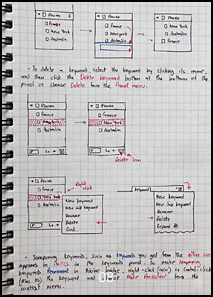 Places
France
New York
Australia
Places
France
New York
Australia
Places
France
New York
Australia
- To delete a keyword, select the keyword by clicking its name,
and then click the Delete keyword button at the bottom of the
panel or choose Delete from the Panel menu.
Places
France
New York
Australia
Places
France
New York
Australia
Delete icon
Places
France
New York
Australia
Right
click
New keyword
New sub keyword
Rename
Delete
Find
Keyword
New keyword
New sub keyword
Rename
Delete
- Temporary keywords, such as keywords you get from the other user
appears in italics in the keywords panel. To make temporary
keywords permanent in Adobe Bridge, right-click (win) or Control-click
(Mac OS) the keyword and choose Make Persistent from the
context menu.